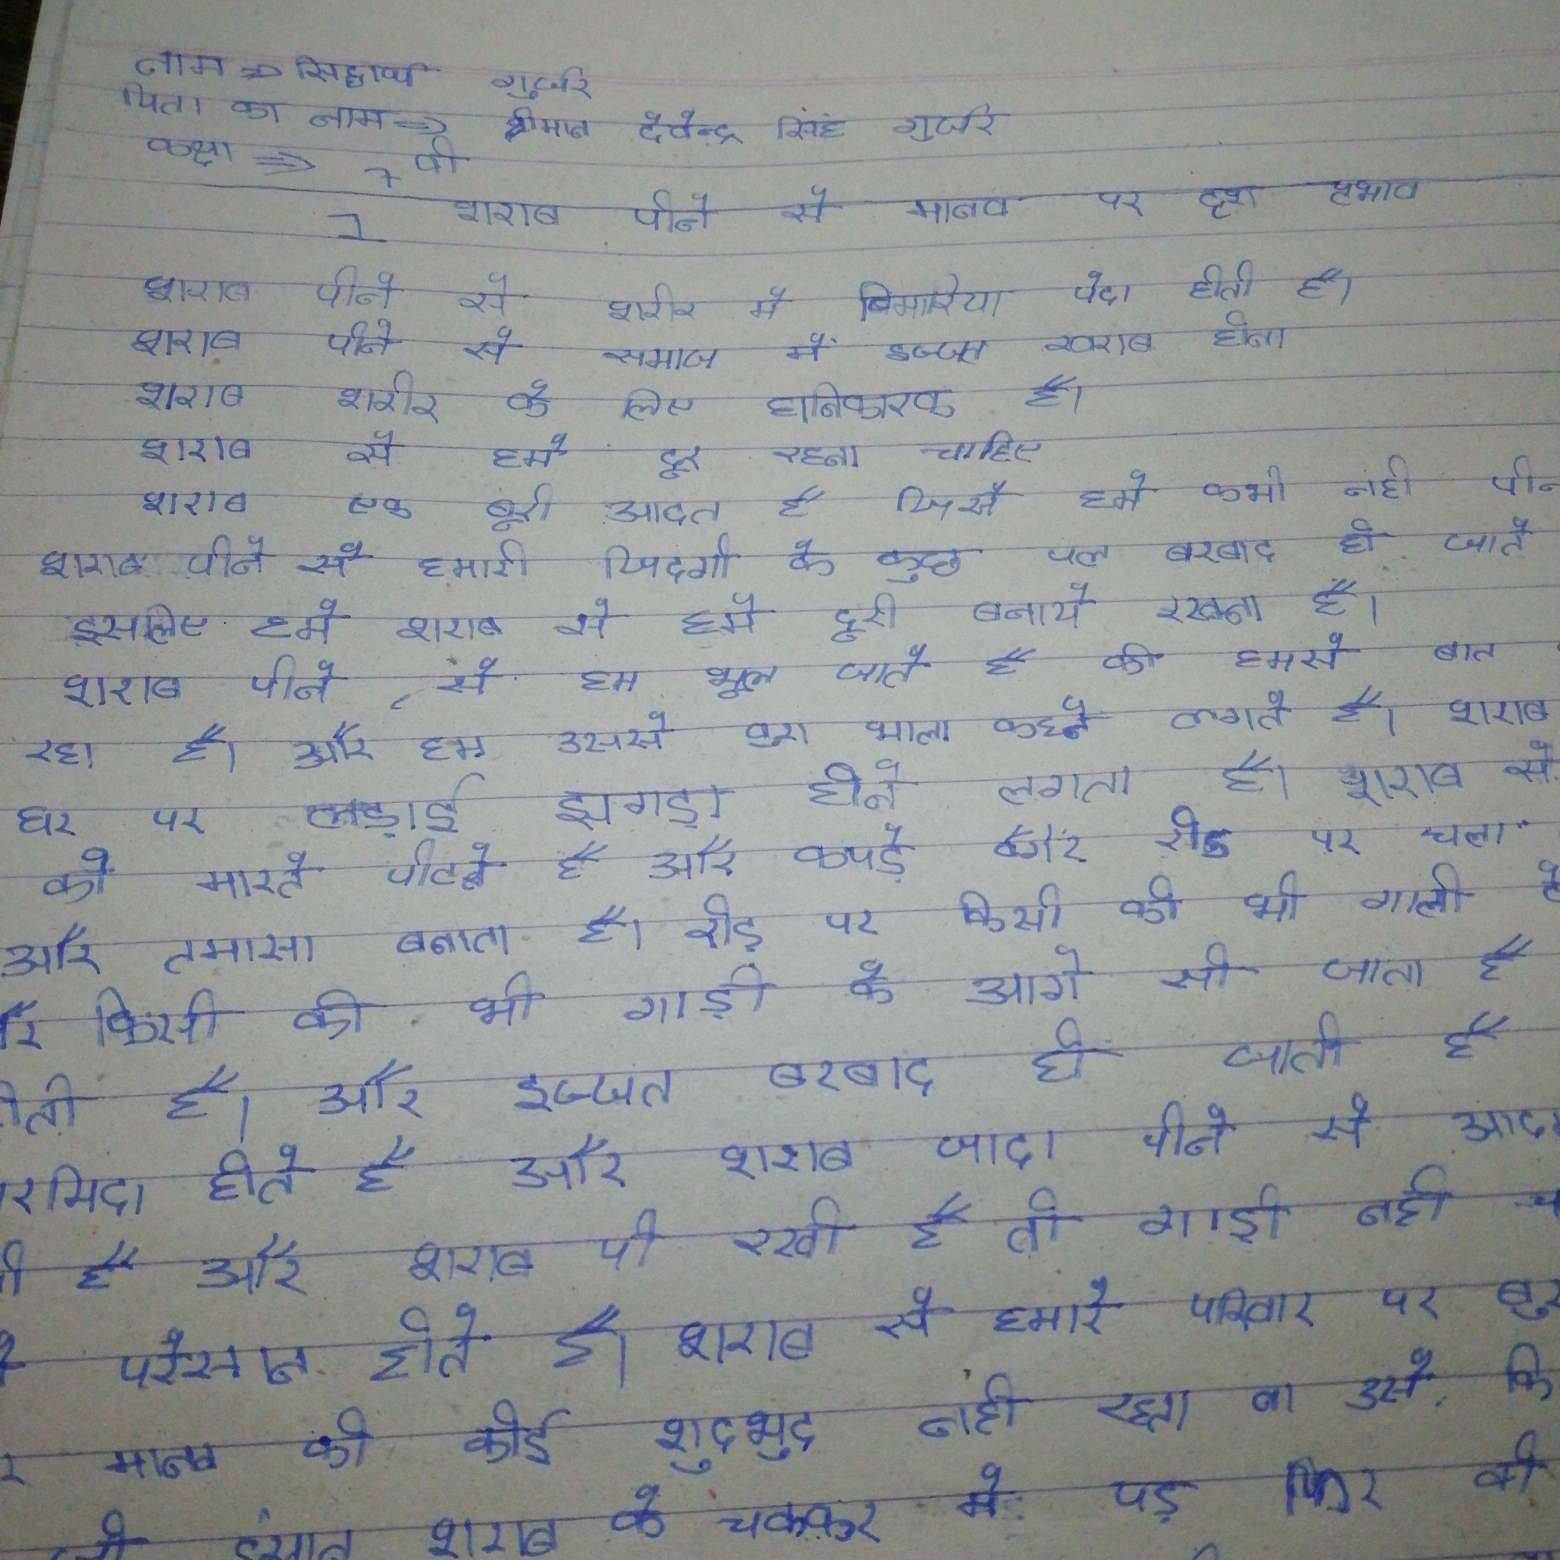 नाम ⇒ सिद्धार्थ गुर्जर
पिता का नाम ⇒ श्रीमान देवेन्द्र सिंह गुर्जर
कक्षा ⇒ 7 वी
शराब पीने से मानव पर प्रभाव
शराब पीने से शरीर में बिमारिया पैदा होती है।
शराब पीने से समाज में इज्जत खराब होना
शराब शरीर के लिए हानिकारक है।
शराब से हमें दूर रहना चाहिए
शराब एक बूरी आदत है जिसे हमे कभी नही
शराब पीने से हमारी जिदगी के कुछ पल बरबाद हो जाते
इसलिए हमें शराब से हमें दूरी बनाये रखना है।
शराब पीने से हम भूल जाते है की हमसे बात
रहा है। और हम उससे बुरा भाला कहने लगते है। शराब
घर पर लड़ाई झगड़ा होने लगता है। शराब से
को मारते पीटते है और कपड़े रोड पर चला
और तमासा बनाता है। रोड़ पर किसी को भी गाली
किसी की भी गाड़ी के आगे सो जाता है
है। और इज्जत बरबाद हो जाती है
होते है और शराब जादा पीने से
है और शराब पी रखी है तो गाड़ी नही
परेसान होते है। शराब से हमारे परिवार पर
मानव को कोई शुदभुद नही रहता ना उसे
इंसान शराब के चक्कर में पड़ फिर